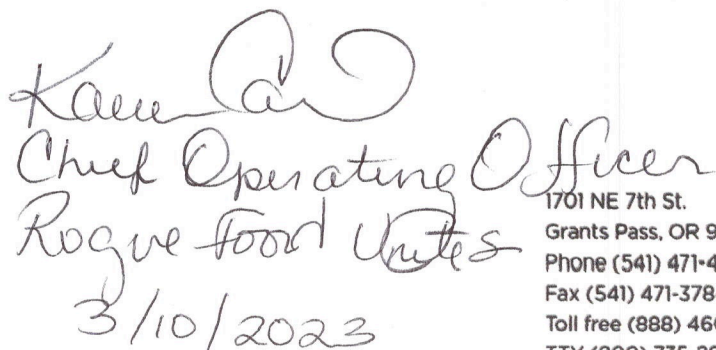 Karen
Chief Operating Officer
Rogue Food Unites
3/10/2023
1701 NE 7th St.
Grants Pass, OR 9
Phone (541) 471-4
Fax (541) 471-378
Toll free (888) 46